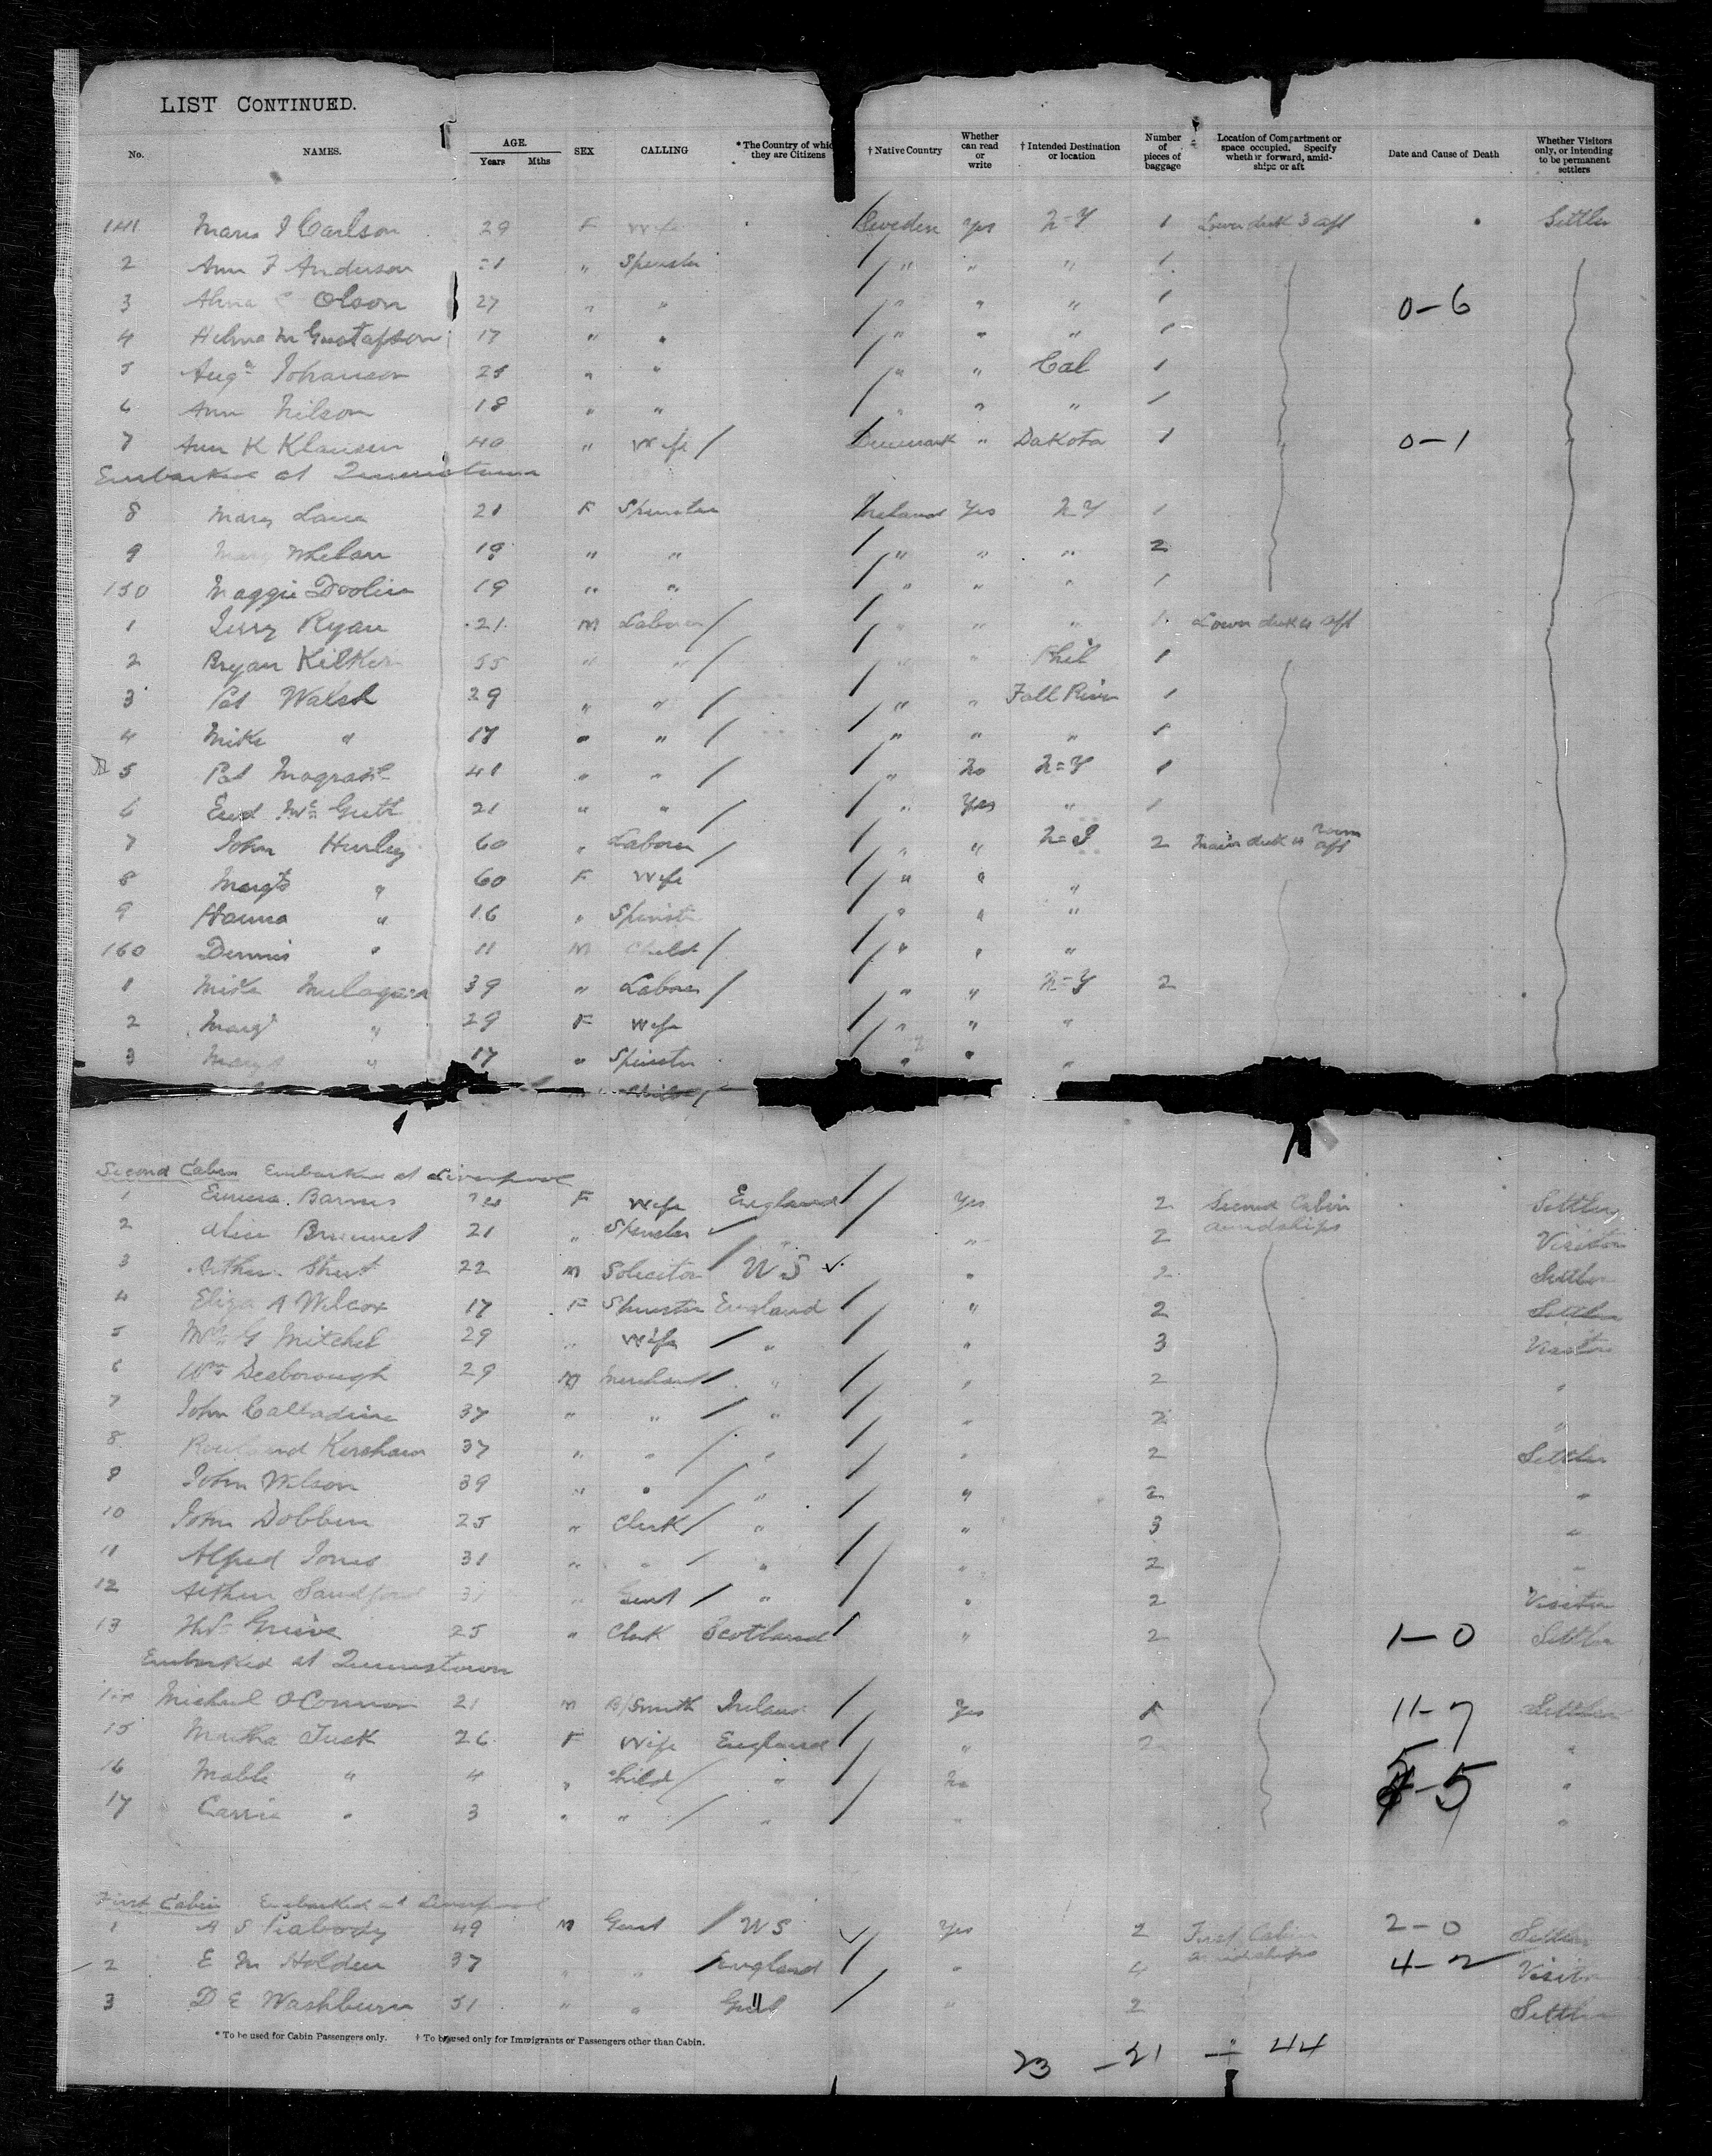 LIST CONTINUED.
No. NAMES. AGE. Years Mths SEX CALLING * The Country of which they are Citizens † Native Country Whether can read or write † Intended Destination or location Number of pieces of baggage Location of Compartment or space occupied. Specify whether forward, amidships or aft Date and Cause of Death Whether Visitors only, or intending to be permanent settlers
141 Carlson 29 F Wife Sweden Yes N=Y 1 Lower deck 3 aft Settler
2 Ann F Anderson 21 " Spinster " " " 1
3 Olson 27 " " " " " 1 0-6
4 Gustafson 17 " " " " " 1
5 Augª Johanson " " " " Cal 1
6 Ann Nilson 18 " " " " " 1
7 Ann K Klausen 40 " Wife Denmark " Dakota 1 0-1
Embarked at Queenstown
8 Mary 21 F Spinster Ireland Yes N-Y 1
9 Mary Whelan 19 " " " " " 2
150 Maggie Doolin 19 " " " " " 1
1 Ryan 21 M Laborer " " " 1 Lower deck 4 aft
2 Bryan 55 " " " " Phil 1
3 Pat Walsh 29 " " " " Fall River 1
4 Mike " 17 " " " " " 1
5 Pat 41 " " " No N=Y 1
6 21 " " " Yes " 1
7 John Hurley 60 " Laborer " " 2 Main deck 4 room aft
8 Margt " 60 F Wife " " "
9 Hanna " 16 " Spinster " " "
160 Dennis " 11 M Child " " "
1 39 " Laborer " " N=Y 2
2 Margt " 29 F Wife " " "
3 " 17 " Spinster " " "
Child
Second Cabin Embarked at Liverpool
1 Emma Barnes F Wife England Yes 2 Second Cabin amidships Settler
2 Alice 21 " Spinster " " 2 Visitor
3 Arthur 22 M Solicitor U S " 2 Settler
4 Eliza A Wilcox 17 F Spinster England " 2 Settler
5 G Mitchel 29 " Wife " " 3 Visitor
6 Wm Desborough 29 M Merchant " " 2 "
7 John Calladine 37 " " " " 2 "
8 Rowland Kershaw 37 " " " " 2 Settler
9 John Wilson 39 " " " " 2 "
10 John Dobbin 25 " Clerk " " 3 "
11 Alfred Jones 31 " " " " 2 "
12 Arthur Sandford 31 " Gent " " 2 Visitor
13 Grieve 25 " Clerk Scotland " 2 1-0 Settler
Embarked at Queenstown
14 Michael O'Connor 21 M B/Smith Ireland Yes 1 11-7 Settler
15 Martha Tuck 26 F Wife England " 2 "
16 " 4 " Child " No 5-5 "
17 Carrie " 3 " " " " "
First Cabin Embarked at Liverpool
1 A S Peabody 49 M Gent U S Yes 2 First Cabin amidships 2-0 Settler
2 E M Holden 37 " " England " 4 4-2 Visitor
3 D E Washburn 31 " " " " 2 Settler
* To be used for Cabin Passengers only. † To be used only for Immigrants or Passengers other than Cabin.
23 - 21 ÷ 44